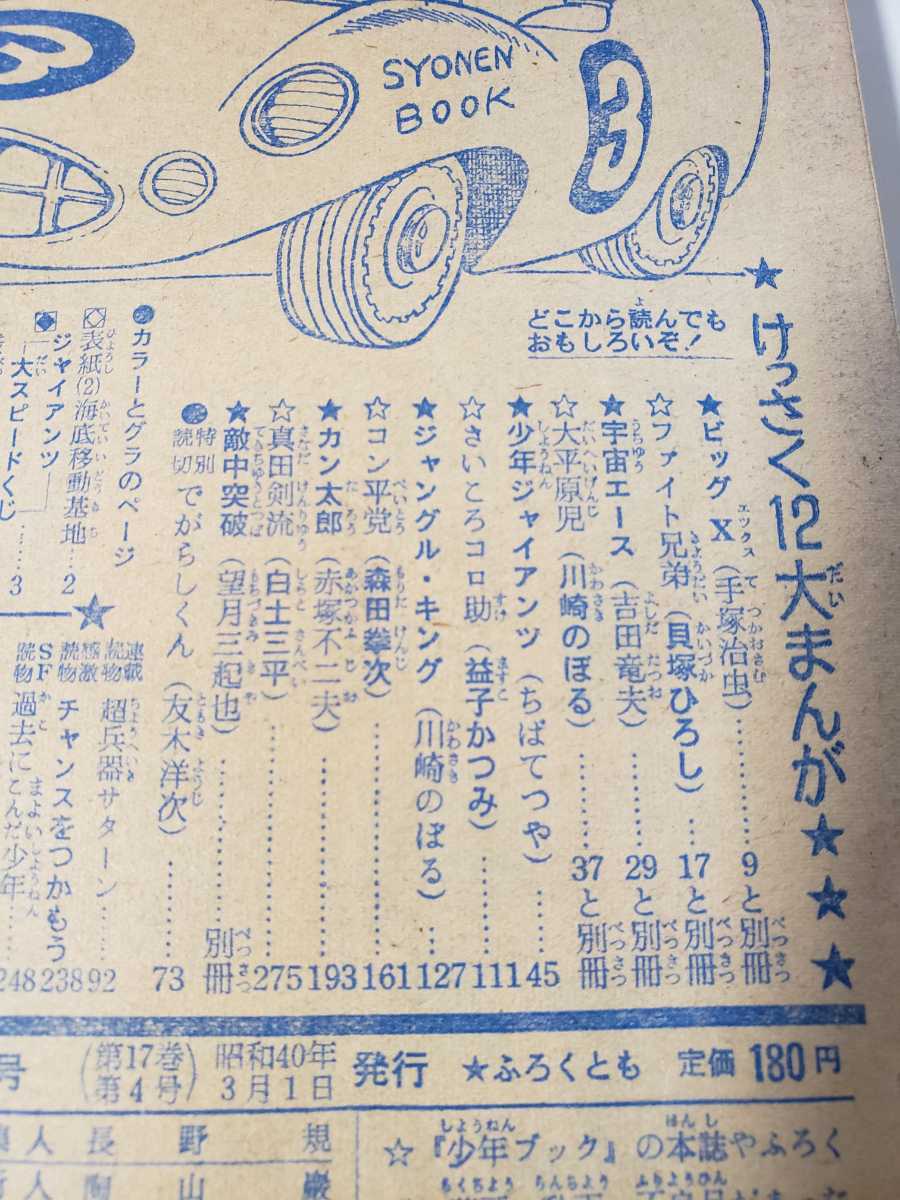 3
SYONEN
BOOK
3
★けっさく12大まんが★★★
どこから読んでも
おもしろいぞ!
★ビッグX(手塚治虫)………9と別冊
☆ファイト兄弟(貝塚ひろし)…17と別冊
★宇宙エース(吉田竜夫)………29と別冊
☆大平原児(川崎のぼる)………37と別冊
★少年ジャイアンツ(ちばてつや)……45
☆さいころコロ助(益子かつみ)………111
★ジャングル・キング(川崎のぼる)……127
☆コン平党(森田拳次)………161
★カン太郎(赤塚不二夫)………193
☆真田剣流(白土三平)………275
★敵中突破(望月三起也)………別冊
特別読切 でがらしくん(友木洋次)……73
●カラーとグラのページ
◇表紙(2)海底移動基地…2
◆ジャイアンツ―
―大スピードくじ……3
★
連載読物 超兵器サターン……92
感激読物 チャンスをつかもう 238
SF読物 過去にまよいこんだ少年…248
号
(第17巻
第4号)
昭和40年
3月1日
発行
★ふろくとも
定価180円
人 長野規
人 陶山巌
☆『少年ブック』の本誌やふろく